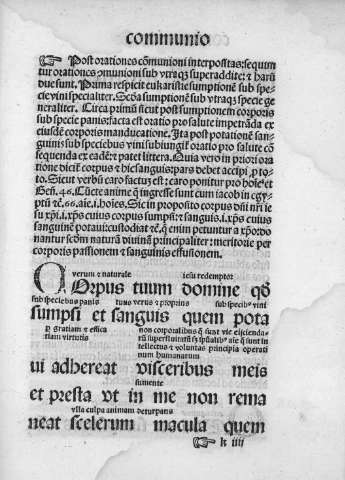 communio
☞ Post orationes cōmunioni interpositas: sequun
tur orationes ɔmunioni sub vtraqꝫ superaddite: ⁊ harū
due sunt. Prima respicit eukaristie sumptionē sub spe-
cie vini specialiter. Scōa sumptionē sub vtraqꝫ specie ge
neraliter. Circa primū sicut post sumptionem corporis
sub specie panis: facta est oratio pro salute impetrāda ex
eiusdē corporis manducatione. Ita post potationē san-
guinis sub speciebus vini subiungit oratio pro salute cō
sequenda ex eadē: vt patet littera. Quia vero in priori ora
tione dicit̄ corpus ⁊ hic sanguis: pars debet accipi ꝓ to-
to. Sicut verbū caro factuꝫ est: caro ponitur pro hoīe: et
Gen. 46. Cūcte anime q̄ ingresse sunt cum iacob in egy-
ptū ⁊c̄. 66. aīe. i. hoīes. Sic in proposito corpus dñi nr̄i ie
su xp̄i. i. xp̄s cuius corpus sumpsi: ⁊ sanguis. i. xp̄s cuius
sanguinē potaui: custodiat ⁊c̄. q̄ enim petuntur a xp̄o: do
nantur scd̄m naturā diuinā principaliter: meritorie per
corporis passionem ⁊ sanguinis effusionem.
verum ⁊ naturale iesu redemptor
COrpus tuum domine qd̄
sub speciebus panis tuus verus ⁊ proprius sub specieb⁹ vini
sumpsi et sanguis quem pota
ꝑ gratiam ⁊ effica non corporalibus q̄ sunt vie eijcienda-
ciam virtutis rū superfluitatū sꝫ sp̄ualib⁹ aīe q̄ sunt in
tellectus ⁊ voluntas principia operati
num humanarum
ui adhereat visceribus meis
sumente
et presta vt in me non rema
vlla culpa animam deturpans
neat scelerum macula quem
☞ k iiij